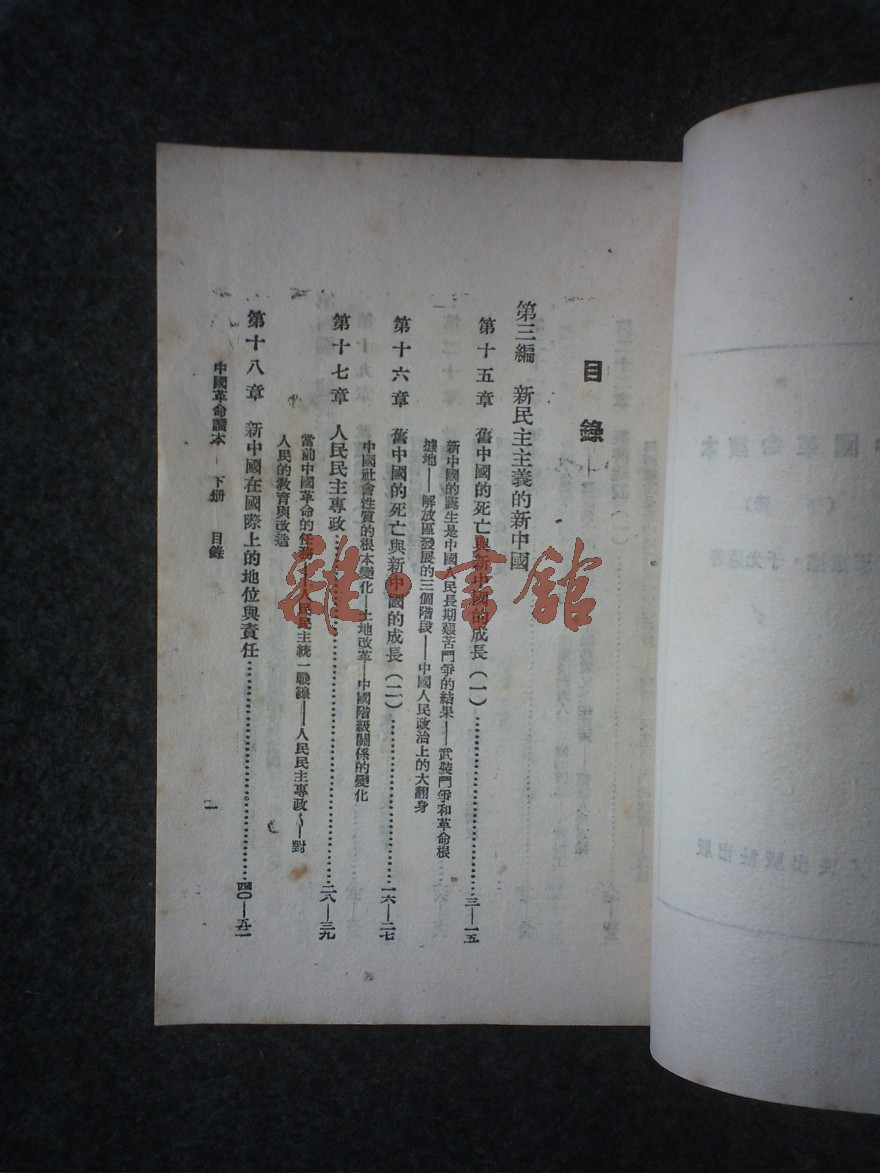 目錄
第三編 新民主主義的新中國
第十五章 舊中國的死亡與新中國的成長(一)……三—一五
新中國的誕生是中國人民長期艱苦鬥爭的結果——武裝鬥爭和革命根
據地——解放區發展的三個階段——中國人民政治上的大翻身
第十六章 舊中國的死亡與新中國的成長(二)……一六—二七
中國社會性質的根本變化—土地改革—中國階級關係的變化
第十七章 人民民主專政……二八—三九
當前中國革命的任務——人民民主統一戰線——人民民主專政——對
人民的教育與改造
第十八章 新中國在國際上的地位與責任……四〇—五二
中國革命讀本 — 下册 目錄
一
雜·書館